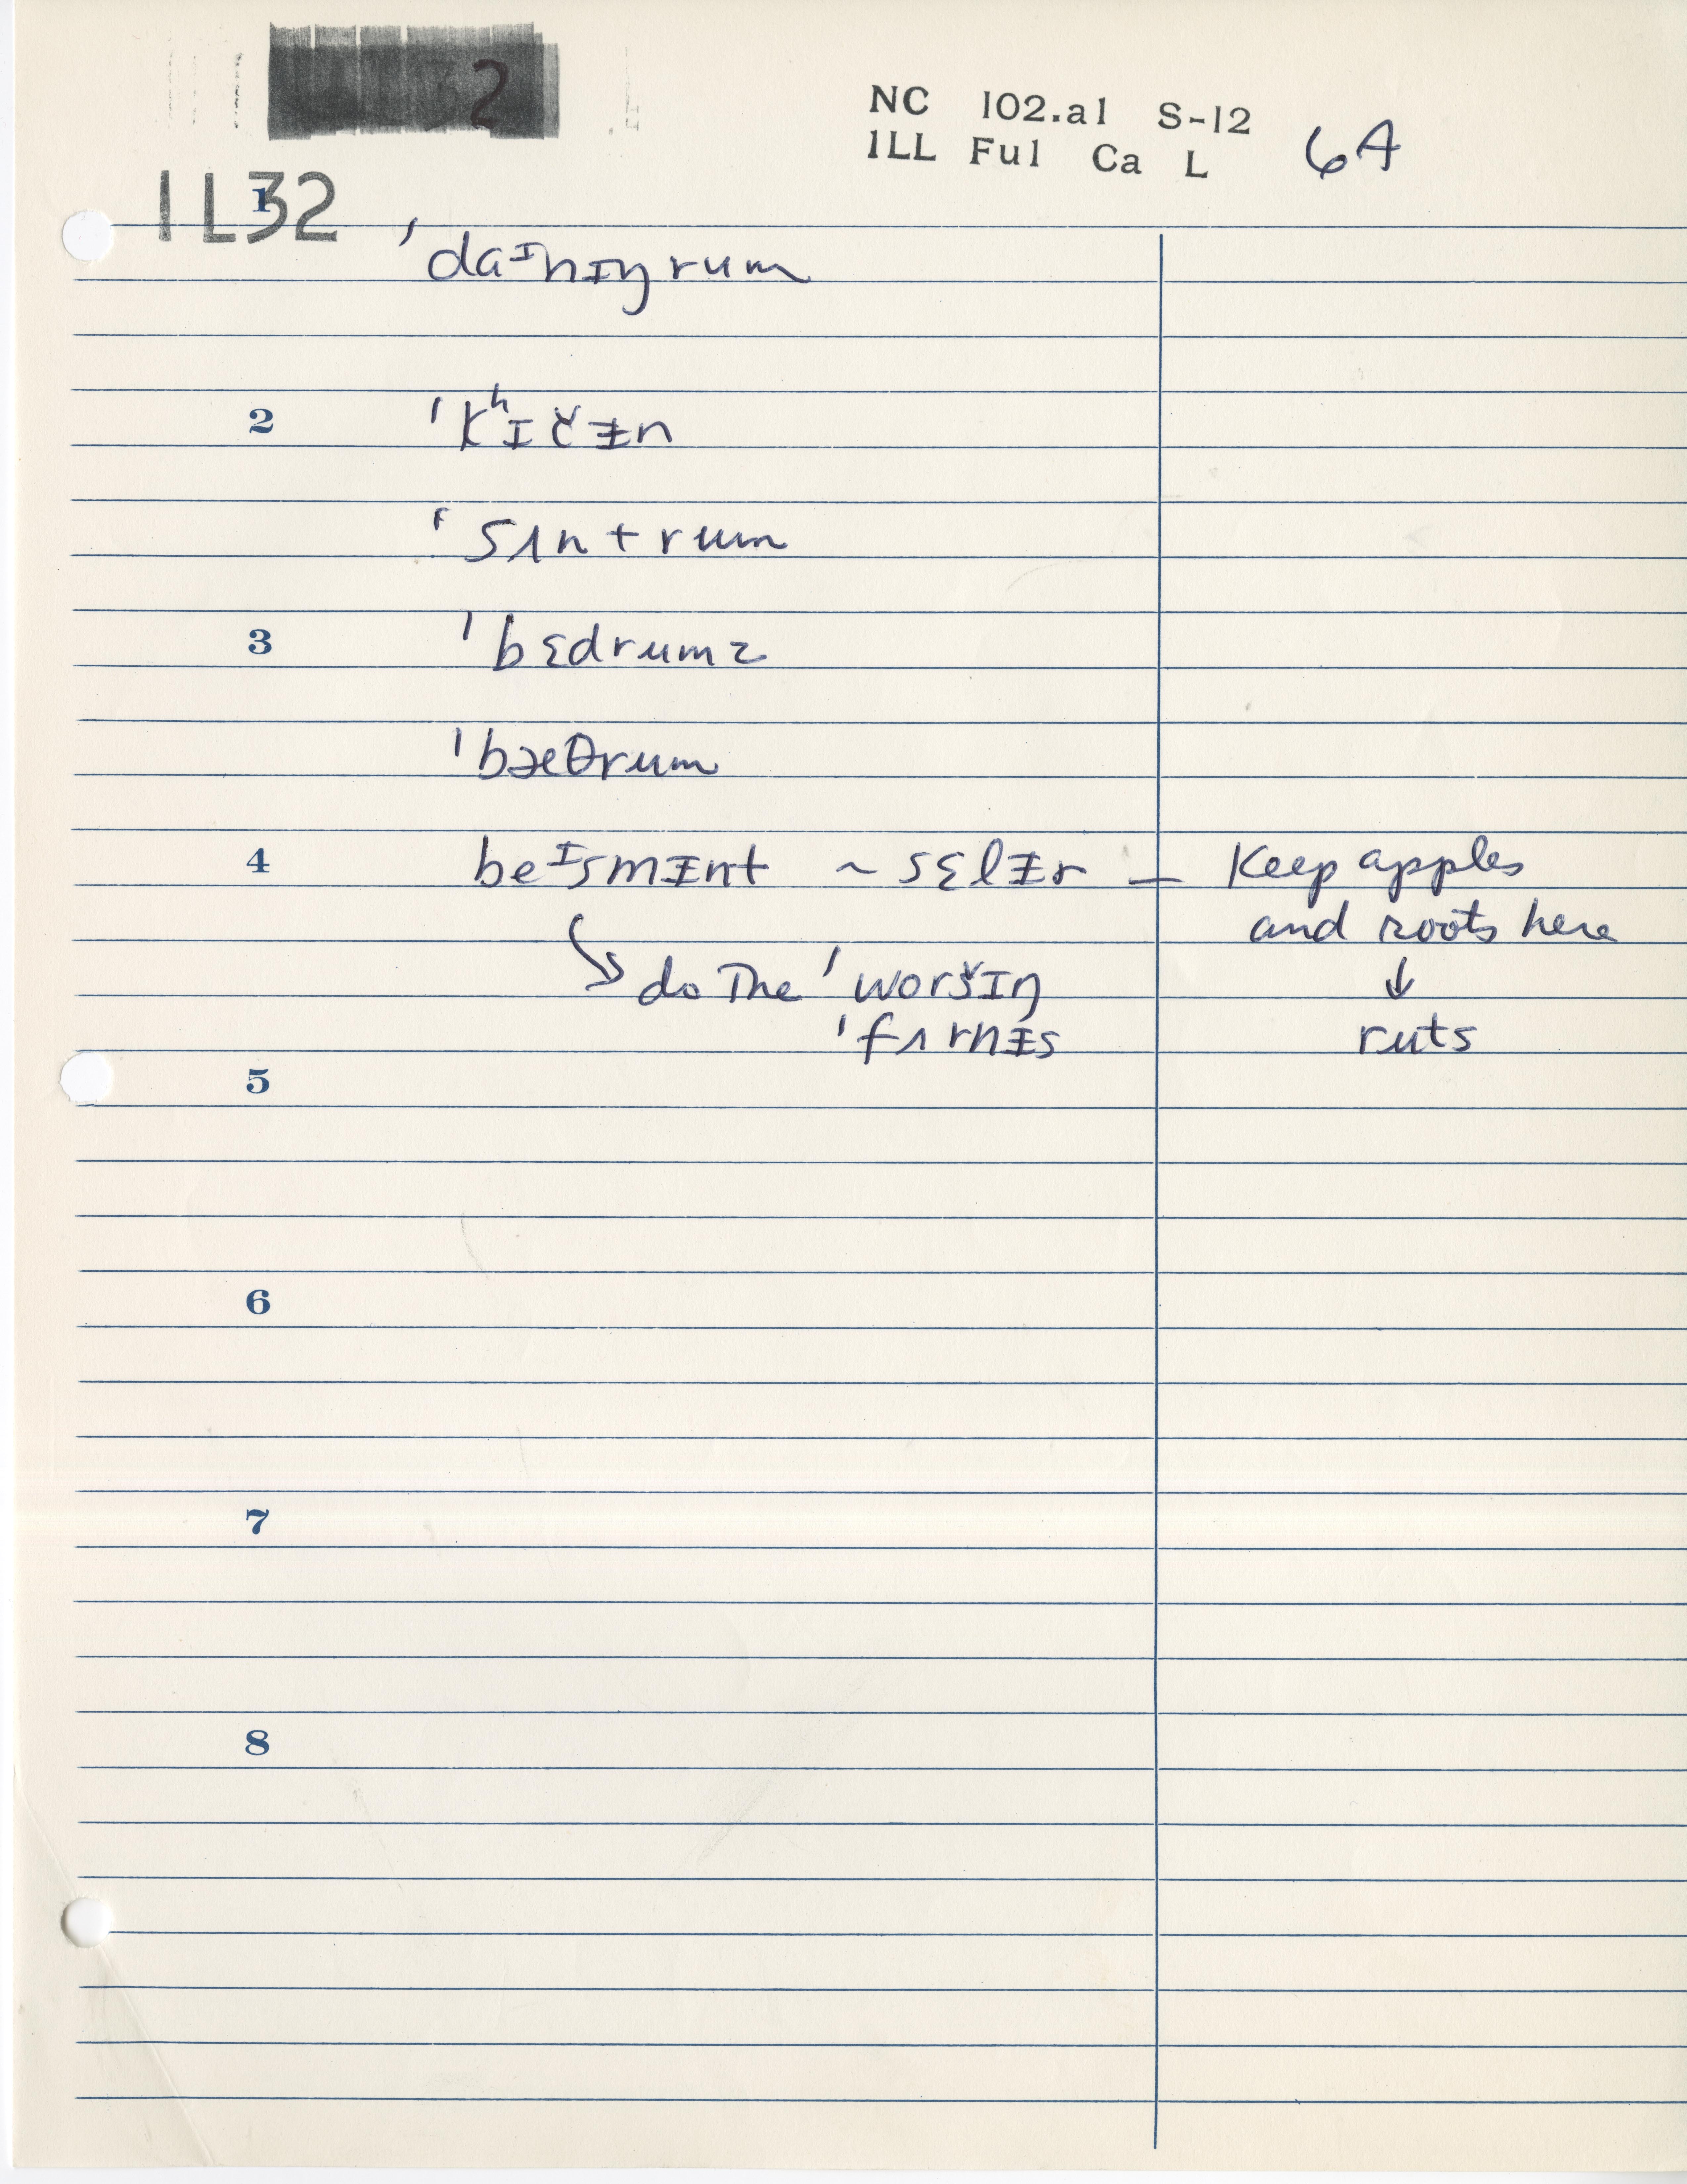 2
NC 102.a1 S-12
ILL Ful Ca L 6A
IL32
1 ˈdaᶦnɪŋrum
2 ˈkʰɪčɪ̵n
ˈsʌntrum
3 ˈbɛdrumz
ˈbæθrum
4 beᶦsmɪ̵nt ~ sɛlɪ̵r — Keep apples
and roots here
↳ do the ˈworšɪŋ ↓
ˈfʌrnɪ̵s ruts
5
6
7
8